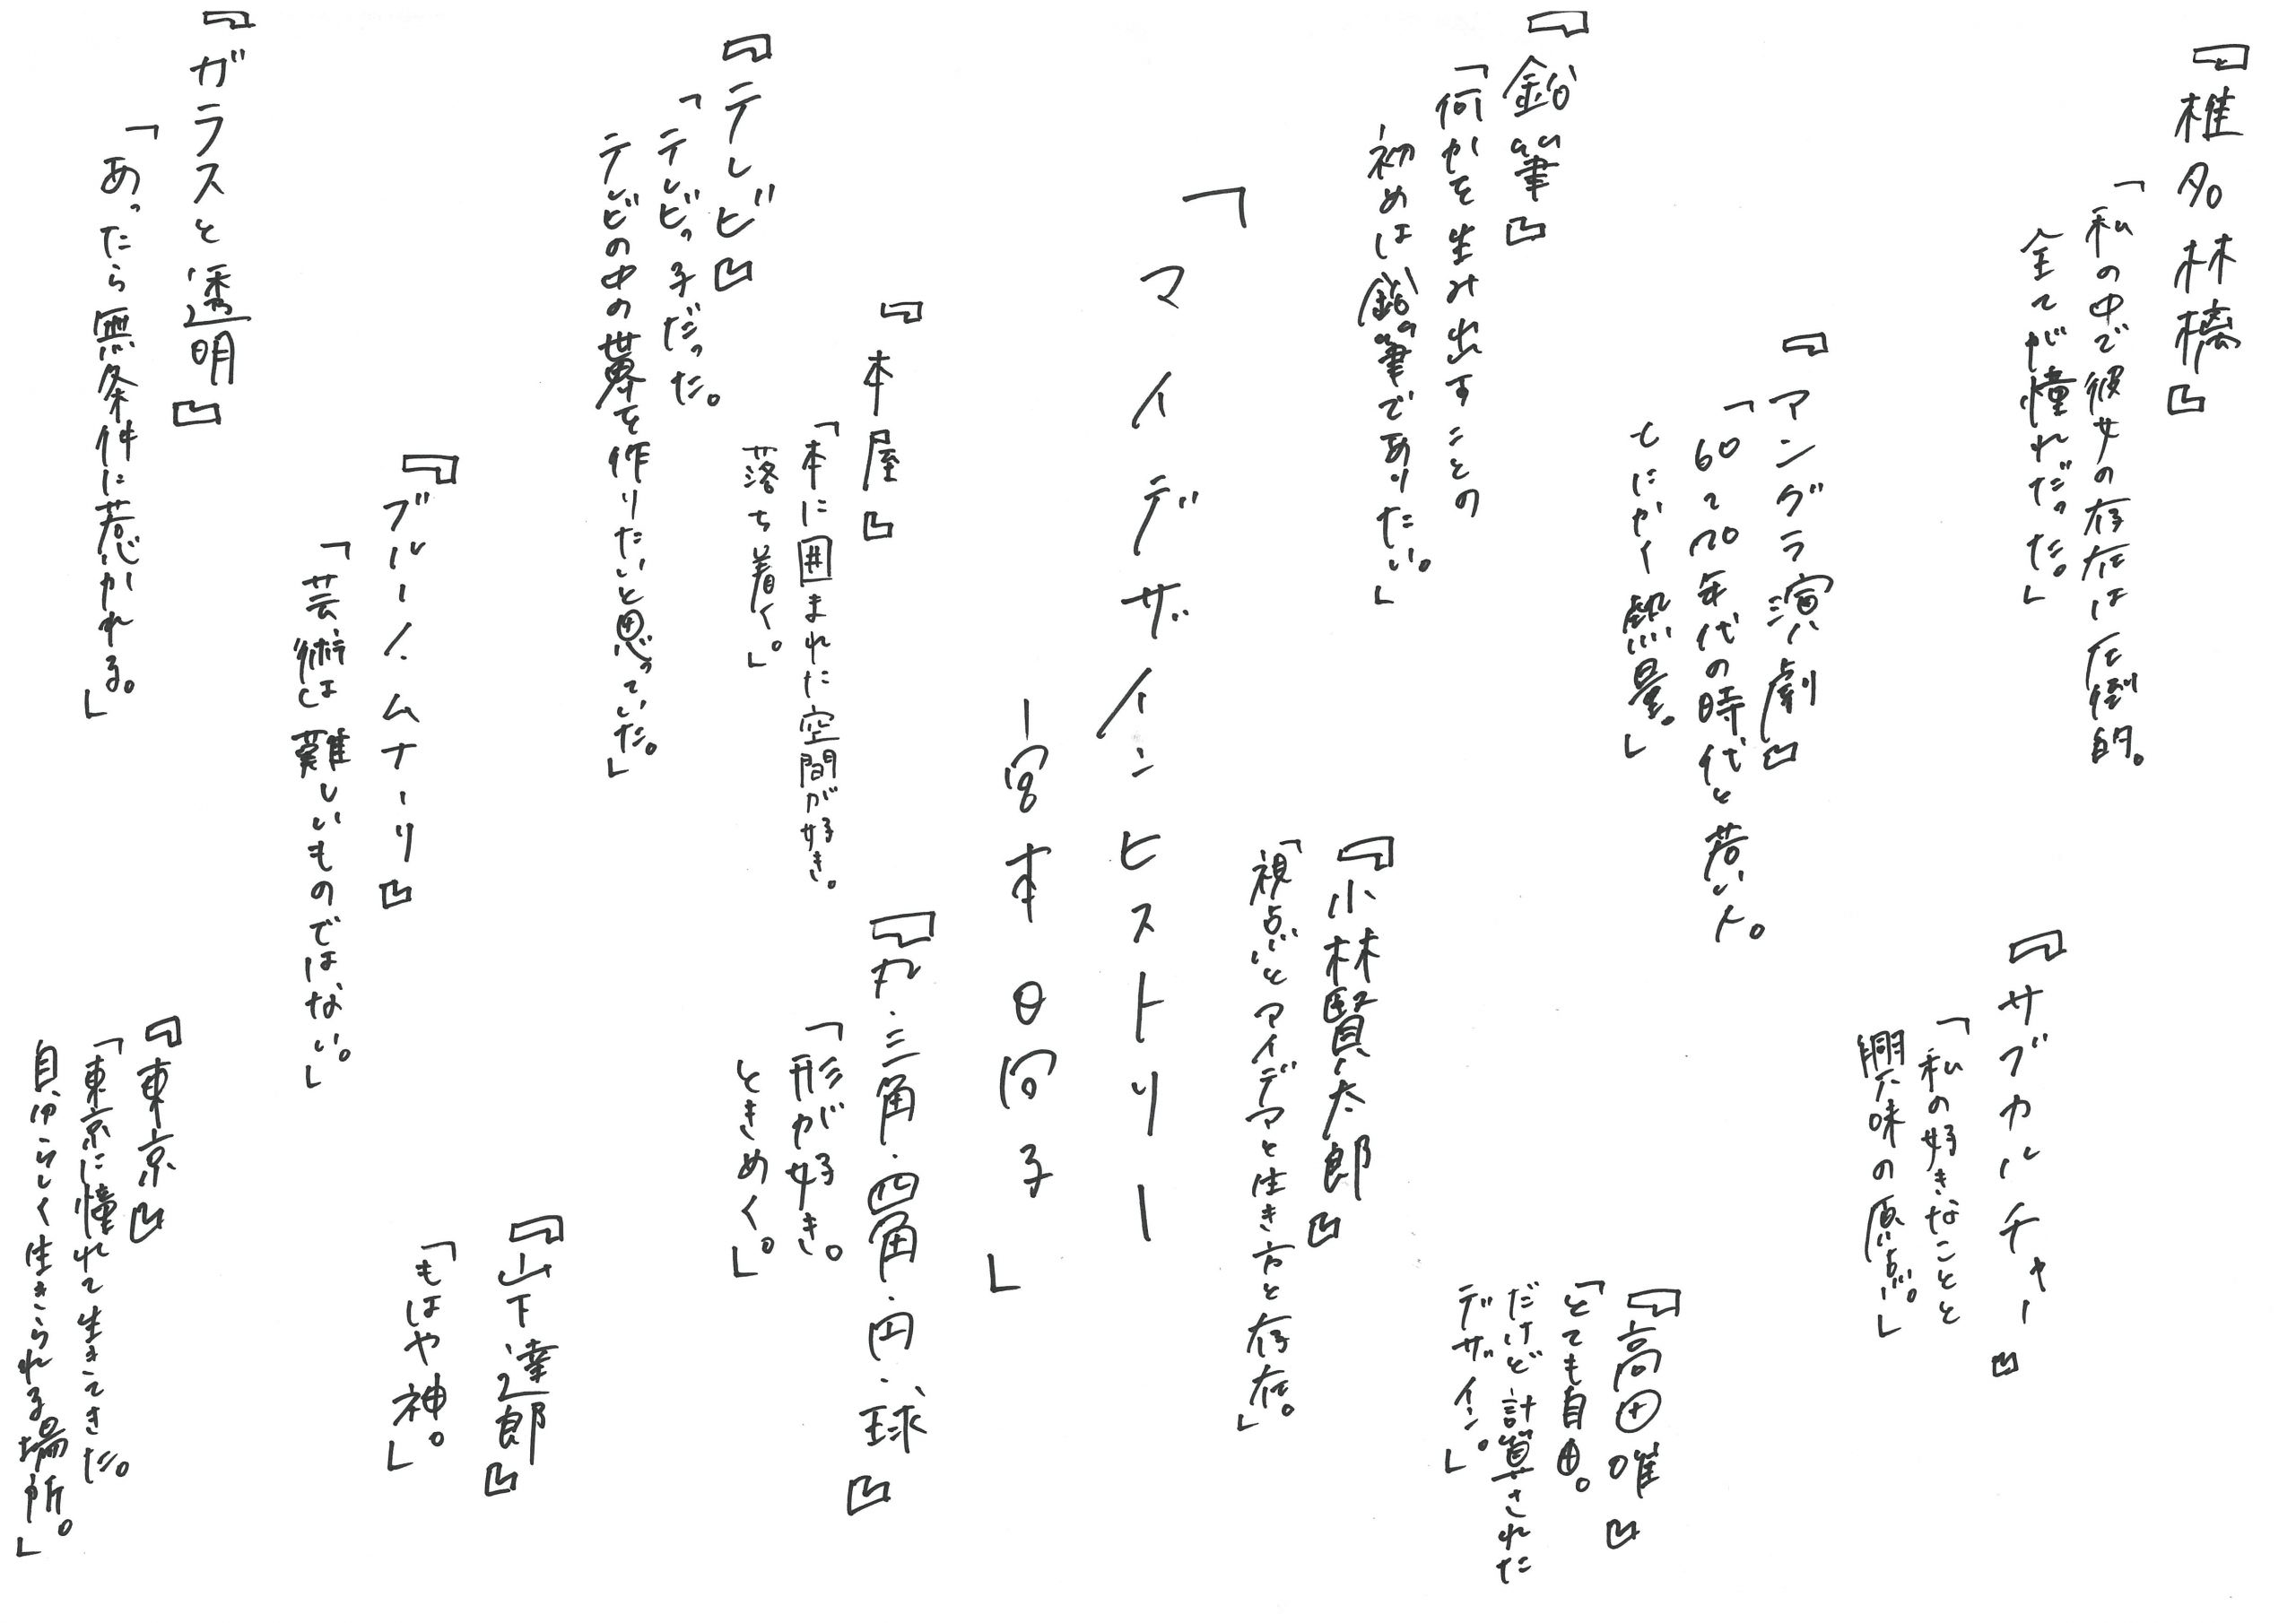 『椎名林檎』
「私の中で彼女の存在は圧倒的。
全てが憧れだった。」
『サブカルチャー』
「私の好きなことと
興味の原点。」
『アングラ演劇』
「60〜70年代の時代と若い人。
とにかく熱量。」
『高田唯』
「とても自由。
だけど計算された
デザイン。」
『鉛筆』
「何かを生み出すことの
初めは鉛筆でありたい。」
『小林賢太郎』
「視点とアイデアと生き方と存在。」
「マイデザインヒストリー
ー宮本日向子」
『本屋』
「本に囲まれた空間が好き。
落ち着く。」
『丸・三角・四角・円・球』
「形が好き。
ときめく。」
『テレビ』
「テレビっ子だった。
テレビの中の世界を作りたいと思っていた。」
『山下達郎』
「もはや神。」
『ブルーノ・ムナーリ』
「芸術は難しいものではない。」
『ガラスと透明』
「あったら無条件に惹かれる。」
『東京』
「東京に憧れて生きてきた。
自分らしく生きられる場所。」